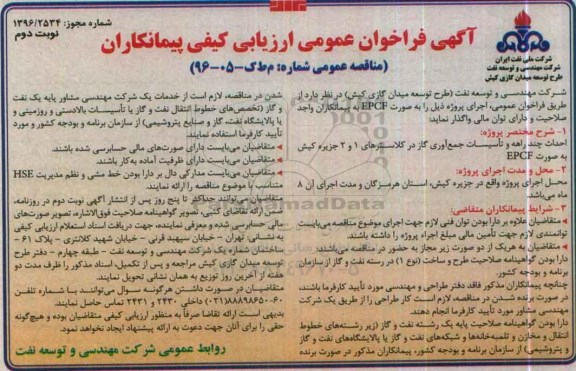 شماره مجوز: ۱۳۹۶/۲۵۳۴
نوبت دوم
آگهی فراخوان عمومی ارزیابی کیفی پیمانکاران
(مناقصه عمومی شماره: م‌ط‌ک-۰۵-۹۶)
شرکت ملی نفت ایران
شرکت مهندسی و توسعه نفت
طرح توسعه میدان گازی کیش
شرکت مهندسی و توسعه نفت (طرح توسعه میدان گازی کیش) در نظر دارد از
طریق فراخوان عمومی، اجرای پروژه ذیل را به صورت EPCF به پیمانکاران واجد
صلاحیت و دارای توان مالی واگذار نماید:
۱- شرح مختصر پروژه:
احداث چند راهه و تأسیسات جمع‌آوری گاز در کلاسترهای ۱ و ۲ جزیره کیش
به صورت EPCF
۲- محل و مدت اجرای پروژه:
محل اجرای پروژه واقع در جزیره کیش، استان هرمزگان و مدت اجرای آن ۸
ماه می‌باشد.
۳- شرایط پیمانکاران متقاضی:
متقاضیان علاوه بر دارا بودن توان فنی لازم جهت اجرای موضوع مناقصه می‌بایست
توانمندی لازم جهت تأمین مالی مبلغ اجراء پروژه را داشته باشند.
متقاضیان به هریک از دو صورت زیر مجاز به حضور در مناقصه می‌باشند:
دارا بودن گواهینامه صلاحیت طرح و ساخت (نوع ۱) در رسته نفت و گاز از سازمان
برنامه و بودجه کشور.
چنانچه پیمانکاران مذکور فاقد دفتر طراحی و مهندسی مورد تأیید کارفرما باشند،
در صورت برنده شدن در مناقصه، لازم است کار طراحی را از طریق یک شرکت
مهندسی مشاور مورد تأیید کارفرما انجام دهند.
دارا بودن گواهینامه صلاحیت پایه یک رشته نفت و گاز (زیر رشته‌های خطوط
انتقال و مخازن و تلمبه‌خانه‌ها و شبکه‌های نفت و گاز یا پالایشگاه‌های نفت و گاز
و پتروشیمی) از سازمان برنامه و بودجه کشور، پیمانکاران مذکور در صورت برنده
شدن در مناقصه، لازم است از خدمات یک شرکت مهندسی مشاور پایه یک نفت
و گاز (تخصص‌های خطوط انتقال نفت و گاز یا تأسیسات بالادستی و روزمینی و
یا پالایشگاه نفت، گاز و صنایع پتروشیمی) از سازمان برنامه و بودجه کشور و مورد
تأیید کارفرما استفاده نمایند.
متقاضیان می‌بایست دارای صورت‌های مالی حسابرسی شده باشند.
متقاضیان می‌بایست دارای ظرفیت آماده به‌کار باشند.
متقاضیان می‌بایست مدارکی دال بر دارا بودن خط مشی و نظم مدیریت HSE
متناسب با موضوع مناقصه را ارائه نمایند.
متقاضیان می‌توانند حداکثر تا پنج روز پس از انتشار آگهی نوبت دوم در روزنامه،
ضمن ارائه تقاضای کتبی، تصویر گواهینامه صلاحیت فوق‌الاشاره، تصویر صورت‌های
مالی حسابرسی شده و معرفی نماینده، جهت دریافت اسناد استعلام ارزیابی کیفی
به نشانی تهران - خیابان سپهبد قرنی - خیابان شهید کلانتری - پلاک ۶۱ -
ساختمان شماره یک شرکت مهندسی و توسعه نفت - طبقه چهارم - دفتر طرح
توسعه میدان گازی کیش مراجعه و پس از تکمیل، اسناد مذکور را ظرف مدت دو
هفته از آخرین روز توزیع به همان نشانی تحویل نمایند.
متقاضیان در صورت داشتن هرگونه سوال می‌توانند با شماره تلفن
۶۰-۸۸۸۹۸۶۵۰(۰۲۱) داخلی ۲۴۳۰ و ۲۴۳۱ تماس حاصل نمایند.
بدیهی است ارائه تقاضا صرفاً به منظور ارزیابی کیفی متقاضیان بوده و هیچ‌گونه
حقی را برای آنان جهت دعوت به ارائه پیشنهاد ایجاد نخواهد نمود.
روابط عمومی شرکت مهندسی و توسعه نفت